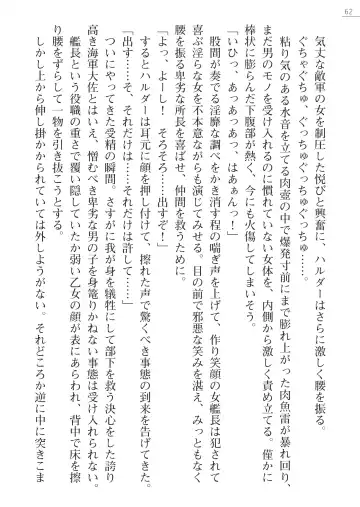 62
気丈な敵軍の女を制圧した悦びと興奮に、ハルダーはさらに激しく腰を振る。
ぐちゃぐちゅ、ぐっちゅぐっちゅぐっちゅ……。
粘り気のある水音を立てる肉壺の中で爆発寸前にまで膨れ上がった肉魚雷が暴れ回り、
まだ男のモノを受け入れるのに慣れていない女体を、内側から激しく責め立てる。僅かに
棒状に膨らんだ下腹部が熱く、今にも火傷してしまいそう。
「いひっ、あっあっあっ、はあぁんっ！」
股間が奏でる淫靡な調べをかき消す程の喘ぎ声を上げて、作り笑顔の女艦長は男に犯されて
喜び淫らな女を不本意ながらも演じてみせる。目の前で邪悪な笑みを湛え、みっともなく
腰を振る卑劣な所長を喜ばせ、仲間を救うために。
「よっ、よーし！そろそろ……出すぞ！」
するとハルダーは耳元に顔を押し付けて、擦れた声で驚くべき事態の到来を告げてきた。
「出すっ……そ、それだけは……それだけは許して……」
ついにやってきた受精の瞬間。さすがに我が身を犠牲にして部下を救う決心をした誇り
高き海軍大佐とはいえ、憎むべき卑劣な男の子を身篭りかねない事態は受け入れられない。
艦長という役職の重さで覆い隠していたか弱い乙女の顔が表にあらわれ、背中で床を擦
り腰をずらして一物を引き抜こうとする。
しかし上から伸し掛かられていては外しようがない。それどころか逆に中に突きこま